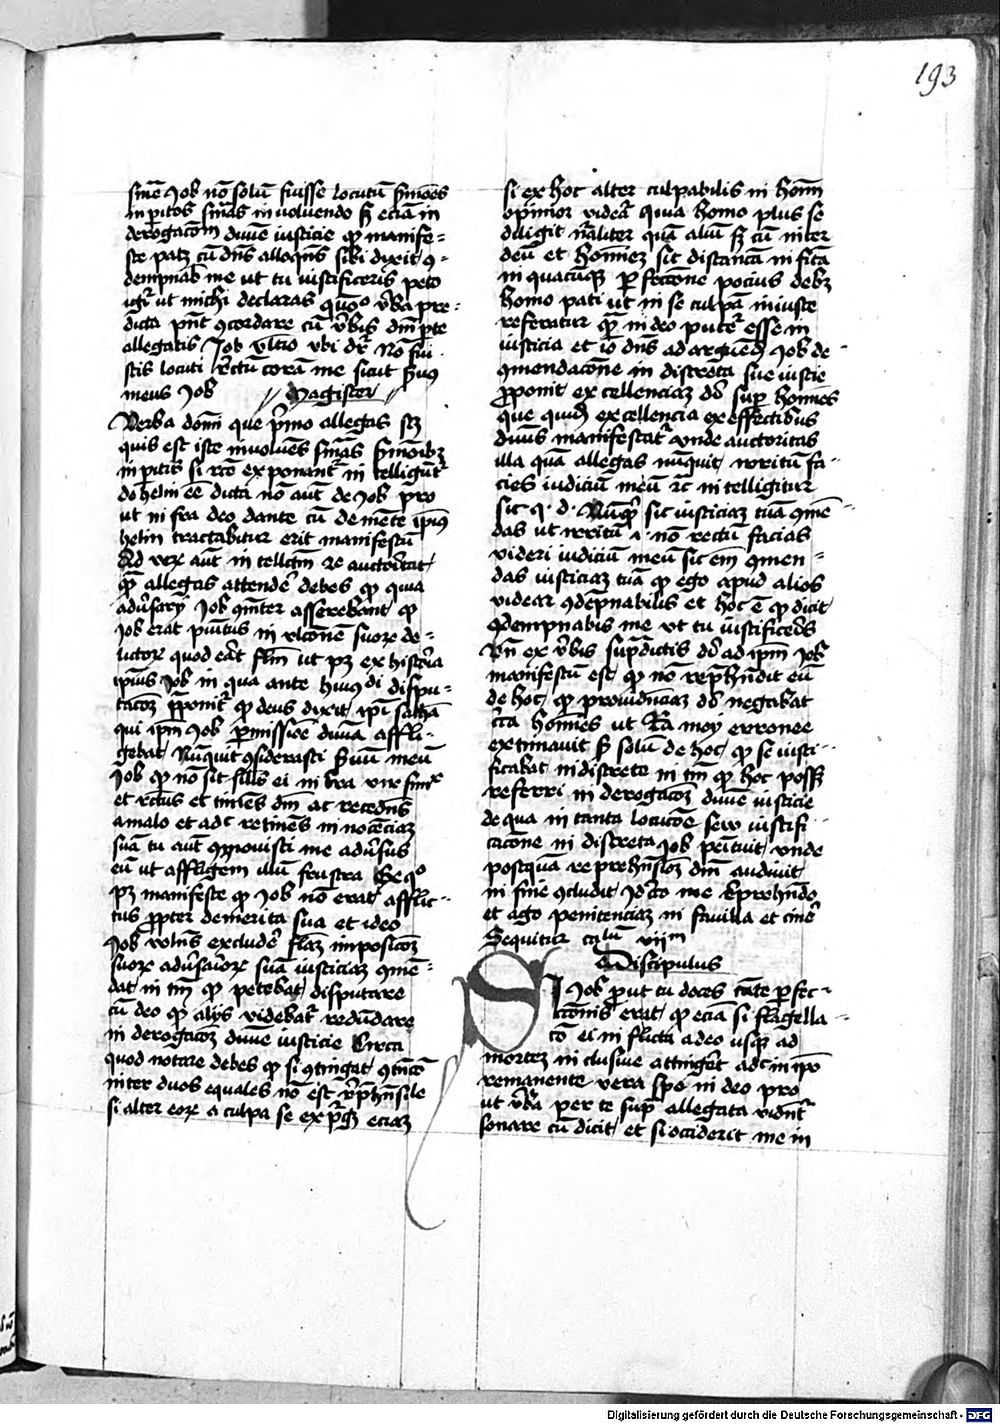 193
sm̄e Job nō solū fuisse locutū sermōes
inpitos sm̄as inuoluendo sʒ eciā in
derogacōm diuīe iusticie qꝫ manife=
ste patʒ cū dn̄s alloqn̄s sibi dixit 9=
dempnab me ut tu iustificeris peto
igr̄ ut michi declaras quo vba pre=
dicta pn̄t 9cordare cū vbis dn̄i p te
allegatis Job vltīo vbi dr̄ Nō fui
stis locuti rectū corā me sicut s̄uus
meus Job // Magister //
Verba domī que p̄mo allegas scʒ
quis est iste inuoluēs sm̄as s̄monibʒ
inpitis si rc̄o exponant̄ intelligūt̄
de heliu eē dicta nō aūt de Job pro
ut infra deo dante cū de mente ip̄iꝰ
heliu tractabitur erit manifestū
Ad verū aūt intellc̄m 2e auctorītat
qm̄ allegas attendē debes qꝫ quia
adūsarij Job 9stanter asserebant qꝫ
Job erat punitus in vlcōnem suoꝝ de=
lictoꝝ quod erāt flm̄ ut pʒ ex historia
ipius Job in qua ante huiꝰdi dispu=
tacōʒ p̄ponit̄ qꝫ deus dixit ip̄i sathā
qui ip̄m Job p̄missiōe diuīa affli=
gebat Nūquit 9siderasti s̄uū meū
Job qꝫ nō sit sīlis ei in tr̄a vir simꝓ
et rectus et timēs dm̄ ac recedn̄s
a malo et adc retinēs in nocēciaʒ
suā tu aūt 9mouisti me adūsus
eū ut affligem illū frustra Ex quo
pʒ manifeste qꝫ Job nō erat afflic=
tus ꝓpter demerita sua et ideo
Job volēs excludē flaʒ imposicōʒ
suoꝝ adūsarioꝝ suā iusticiaʒ 9mē=
dat in tm̄ qꝫ petebat disputare
cū deo qꝫ alijs videbat̄ redūdare
in derogacōʒ diuīe iusticie Circa
quod notare debes qꝫ si 9tingat 9tn̄cō
inter duos equales nō est rep̄hn̄sile
si alter eoꝝ a culpa se expgʒ eciaʒ
si ex hoc alter culpabilis in homī
opiniōe videat̄ quia homo plus se
diligit nāliter quā aliū sʒ cū inter
deū et homīeʒ sit distancia infīta
in quacūqʒ perfeccōne pocius debʒ
homo pati ut in se culpā iniuste
referatur qm̄ in deo putet̄ esse in
iusticia et io dn̄s ad arguēdʒ Job de
9mendacōne indiscreta sue iusticie
p̄ponit excellenciaʒ dei sup̄ homīes
que quid excellencia ex effectibus
diuīs manifestat̄ vnde auctoritas
illa quā allegas nūquit irritū fa=
cies iudiciū meū 2c intelligitur
sic q.d. Nūquid sic iusticiaʒ tuā 9mē=
das ut irritū i. nō rectū facias
videri iudiciū meū sic em̄ 9men=
das iusticiaʒ tuā qꝫ ego apud alios
videar 9dēpnabilis et hoc ē qꝫ dicit
9dempnabis me ut tu iustificeris
Vn̄ ex vbis sup̄dictis dei ad ip̄m Job
manifestū est qꝫ nō rep̄hēdit eū
de hoc qꝫ prouidēciaʒ dei negabat
circa homīes ut Ra moy erronee
extimauit sʒ solū de hoc qꝫ se iusti=
ficabat indiscrete in tm̄ qꝫ hoc possʒ
referri in derogacōʒ diuīe iusticie
de qua in tanta locucōe seu iustifi=
cacōne indiscreta Job penituit vnde
postquā reprehēsionʒ dn̄i audiuit
in fine 9cludit Idcō me rep̄hendo
et ago penitenciaʒ in fauilla et cinē
Sequitur ca^lum vii^m
Discipulus
SI Job prout tu doces tāte perfec=
tionis erat qꝫ eciā si flagella=
cō ei inflicta adeo usqʒ ad
morteʒ inclusiue attingēt adc in ip̄o
remanente vera spe in deo pro
ut vba per te sup̄ allegata vident̄
sonare cū dicit et si occiderit me in
Digitalisierung gefördert durch die Deutsche Forschungsgemeinschaft - DFG